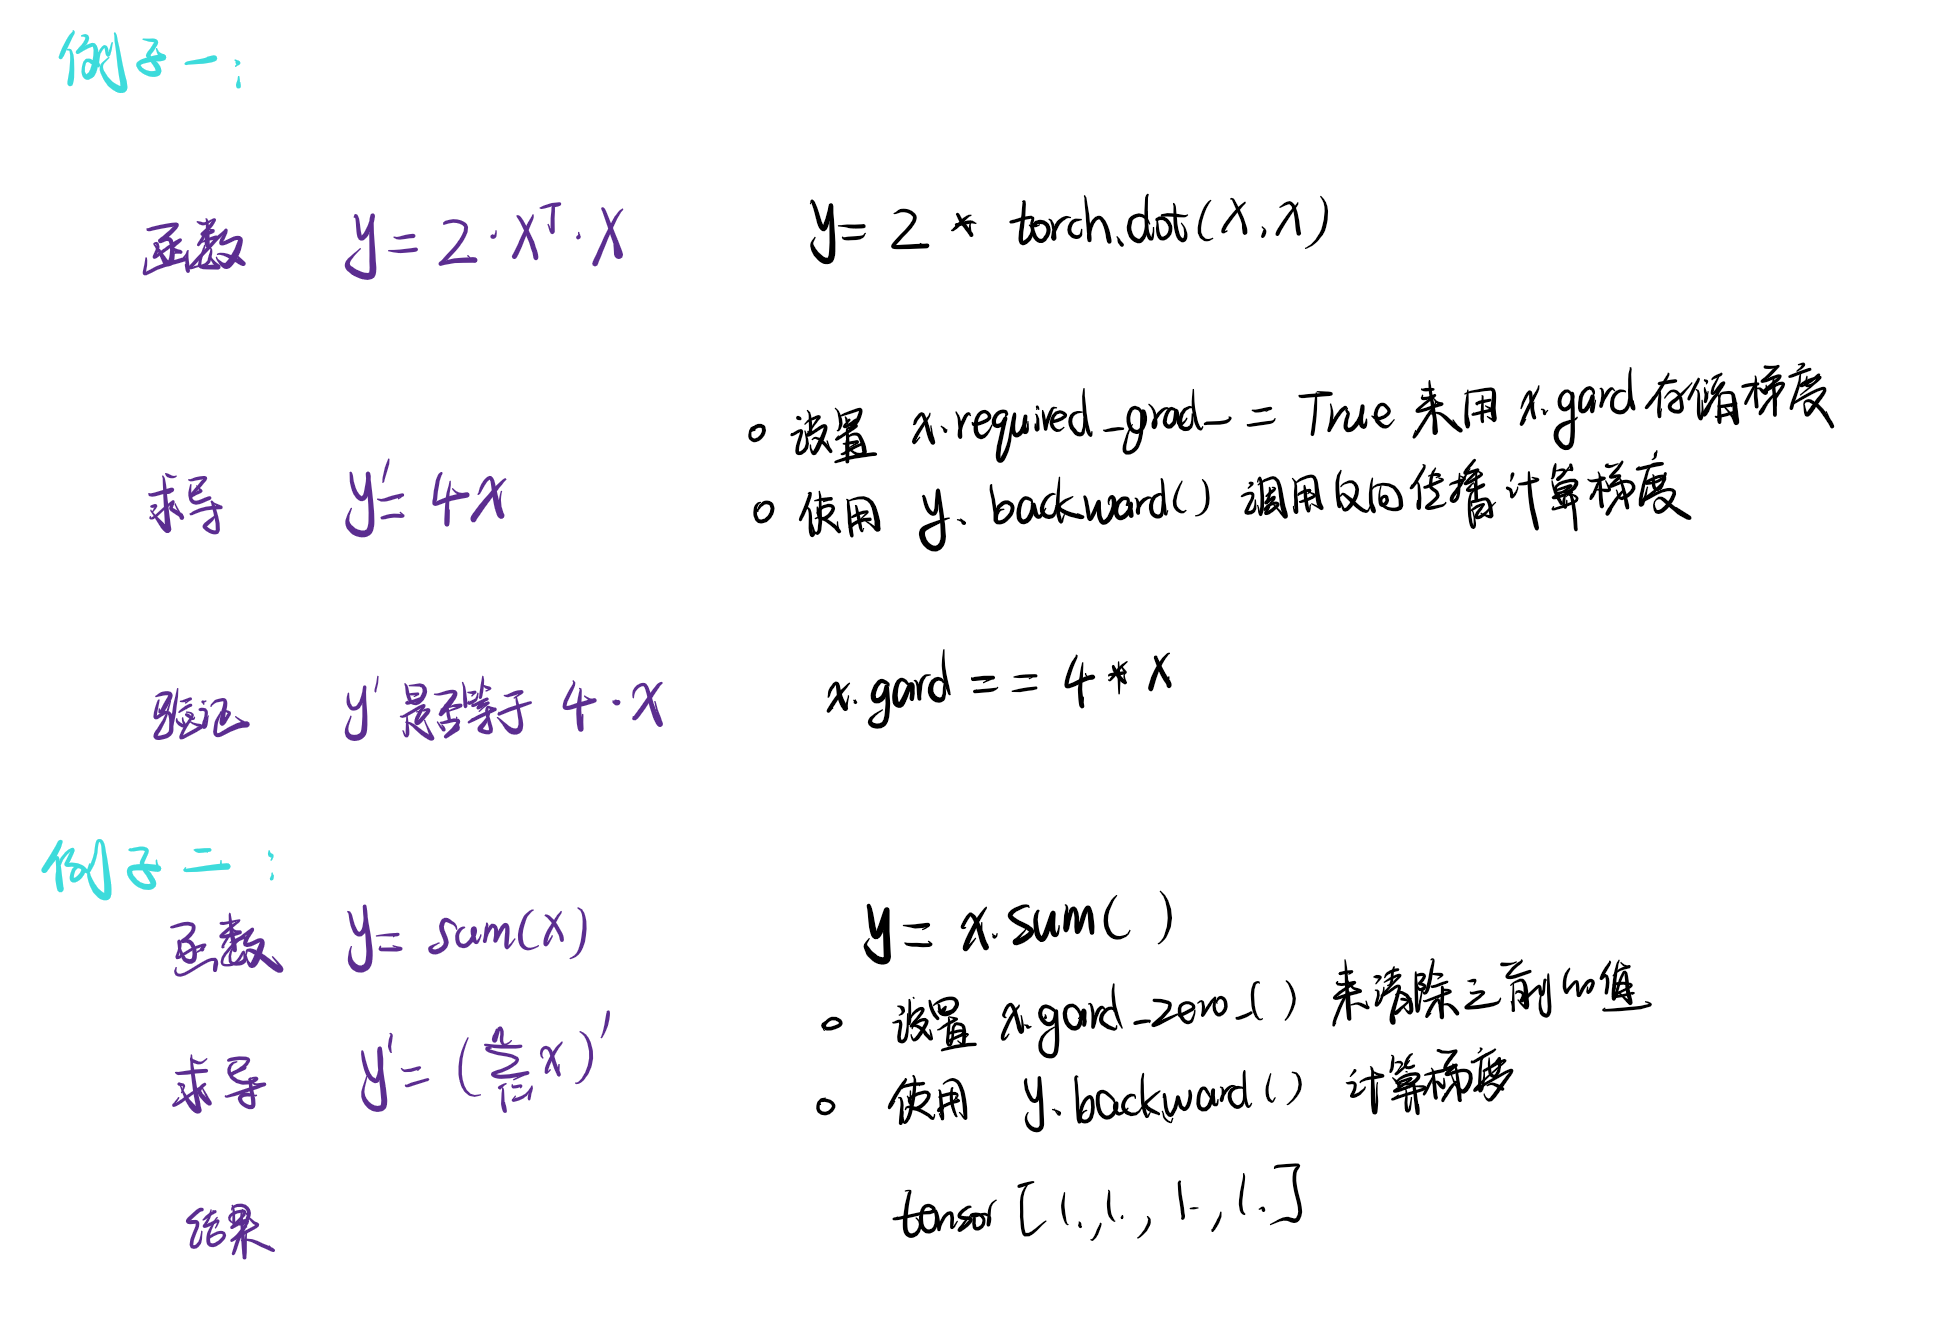 例子一：
函数 y = 2·x^T·x y = 2 * torch.dot(x,x)
。设置 x.required_grad_ = True 来用 x.gard 存储梯度
求导 y' = 4x
。使用 y.backward() 调用反向传播计算梯度
验证 y' 是否等于 4·x x.gard == 4 * x
例子二：
函数 y = sum(x) y = x.sum( )
。设置 x.gard_zero_() 来清除之前的值
求导 y' = (∑_{i=1}^{n} x)'
。使用 y.backward() 计算梯度
结果 tensor [1.,1., 1., 1.]